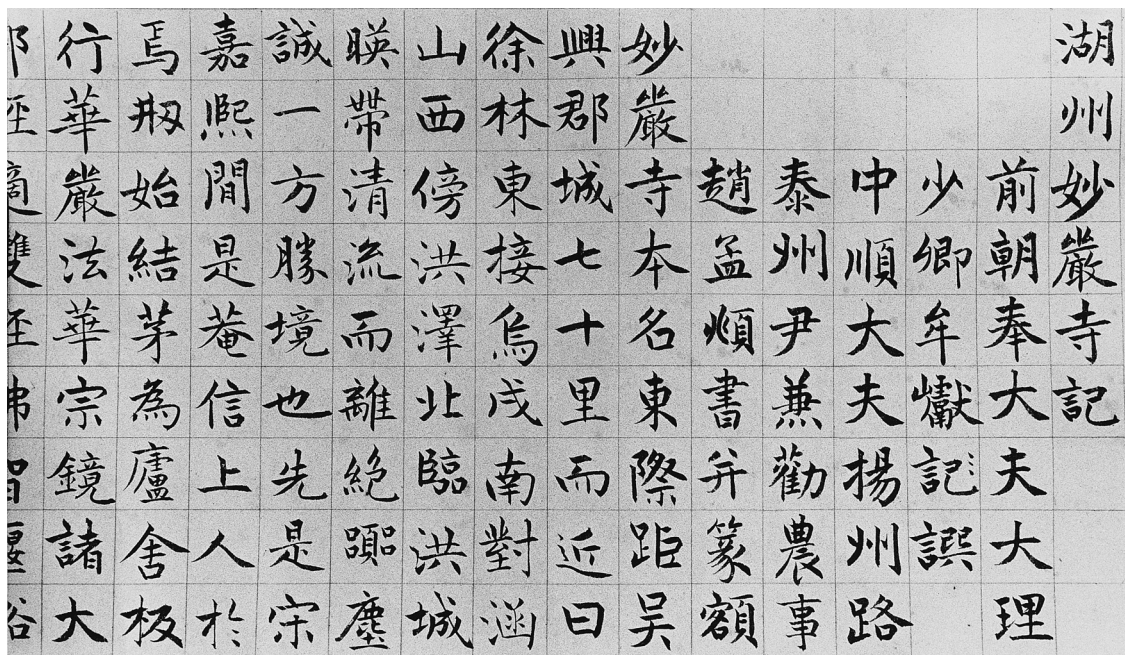 湖州妙嚴寺記
前朝奉大夫大理
少卿牟巘記譔
中順大夫揚州路
泰州尹兼勸農事
趙孟頫書并篆額
妙嚴寺本名東際距吳
興郡城七十里而近曰
徐林東接烏戍南對涵
山西傍洪澤北臨洪城
暎帶清流而離絕囂塵
誠一方勝境也先是宋
嘉熙閒是菴信上人於
焉刱始結茅為廬舍板
行華嚴法華宗鏡諸大